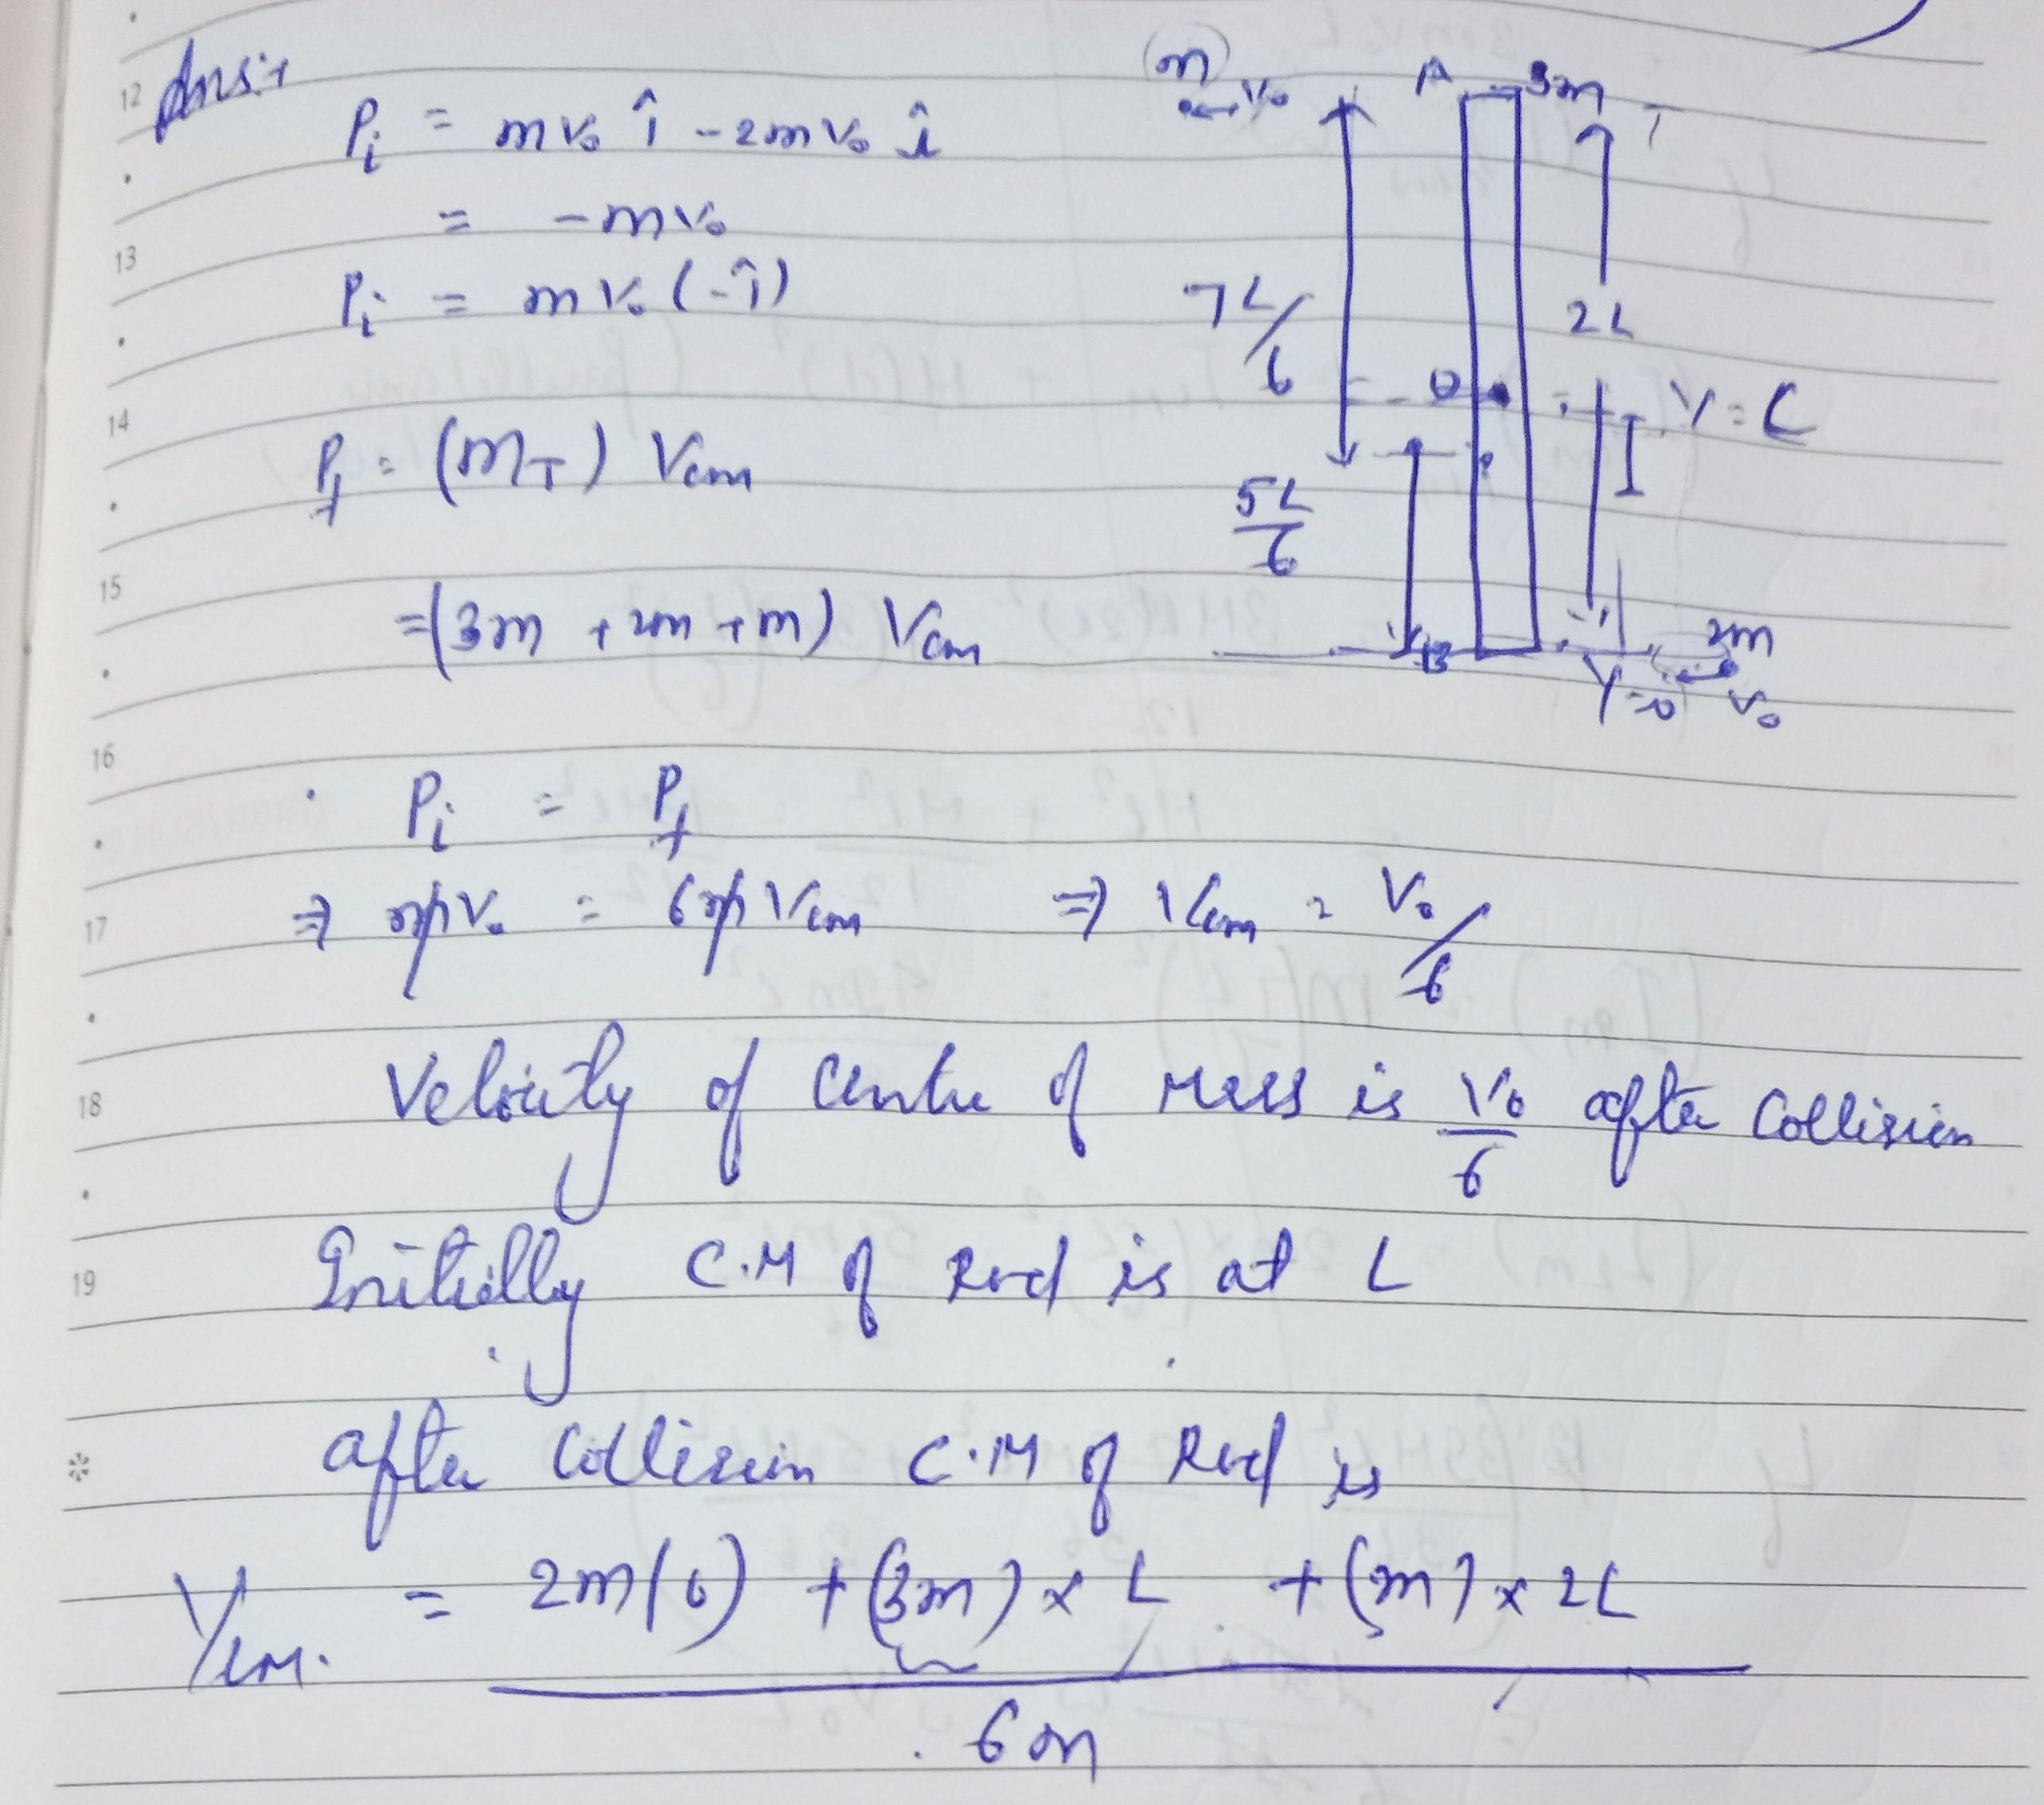 12
Ans:-
Pi = mv₀ î - 2mv₀ î
= -mv₀
13
Pi = mv₀ (-î)
14
Pf = (mT) Vcm
15
=(3m + 2m + m) Vcm
16
Pi = Pf
17
⇒ mv₀ = 6m Vcm ⇒ Vcm = V₀/6
18
Velocity of Centre of Mass is V₀/6 after Collision
19
Initially C.M of Rod is at L
after Collision C.M of Rod is
Ycm. = 2m(0) + (3m) × L + (m) × 2L
6m
m
v₀
A
3m
7L/6
2L
O
Y = L
5L/6
B
Y=0
2m
v₀